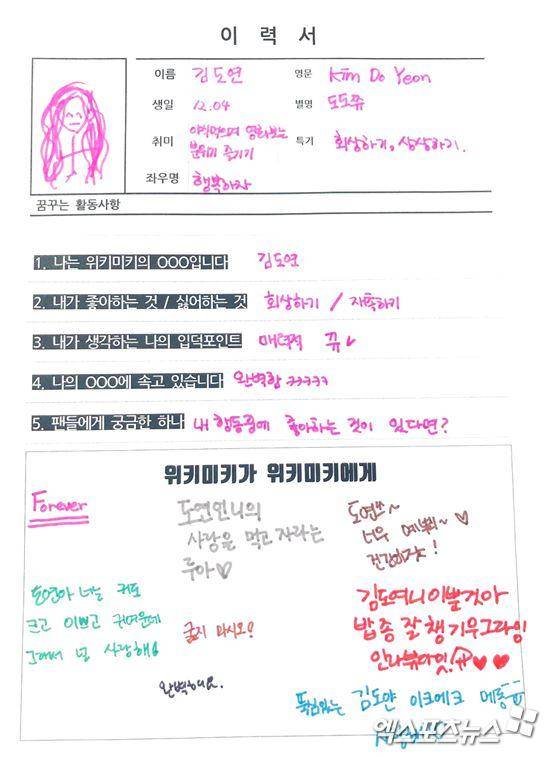 이 력 서
이름 김도연 영문 Kim Do Yeon
생일 12.04 별명 도도쮸
취미 야식먹으며 영화보는 분위기 즐기기 특기 회상하기, 상상하기.
좌우명 행복하자
꿈꾸는 활동사항
1. 나는 위키미키의 OOO입니다 김도연
2. 내가 좋아하는 것 / 싫어하는 것 회상하기 / 재촉하기
3. 내가 생각하는 나의 입덕포인트 매력적
4. 나의 OOO에 속고 있습니다 완벽함 ㅋㅋㅋㅋㅋ
5. 팬들에게 궁금한 하나 내 행동중에 좋아하는 것이 있다면?
위키미키가 위키미키에게
Forever
도연언니의
사랑을 먹고 자라는
루아♡
도연쓰~
너무 예뻐~♡
건강하자!
도연아 너는 키도
크고 이쁘고 귀여운데
그래서 널 사랑해
굶지 마시오!
완벽해요.
김도여니 이쁠것아
밥 종 잘 챙기우그라잉
♥♥
김도얀 이크에크 메롱
엑스포츠뉴스